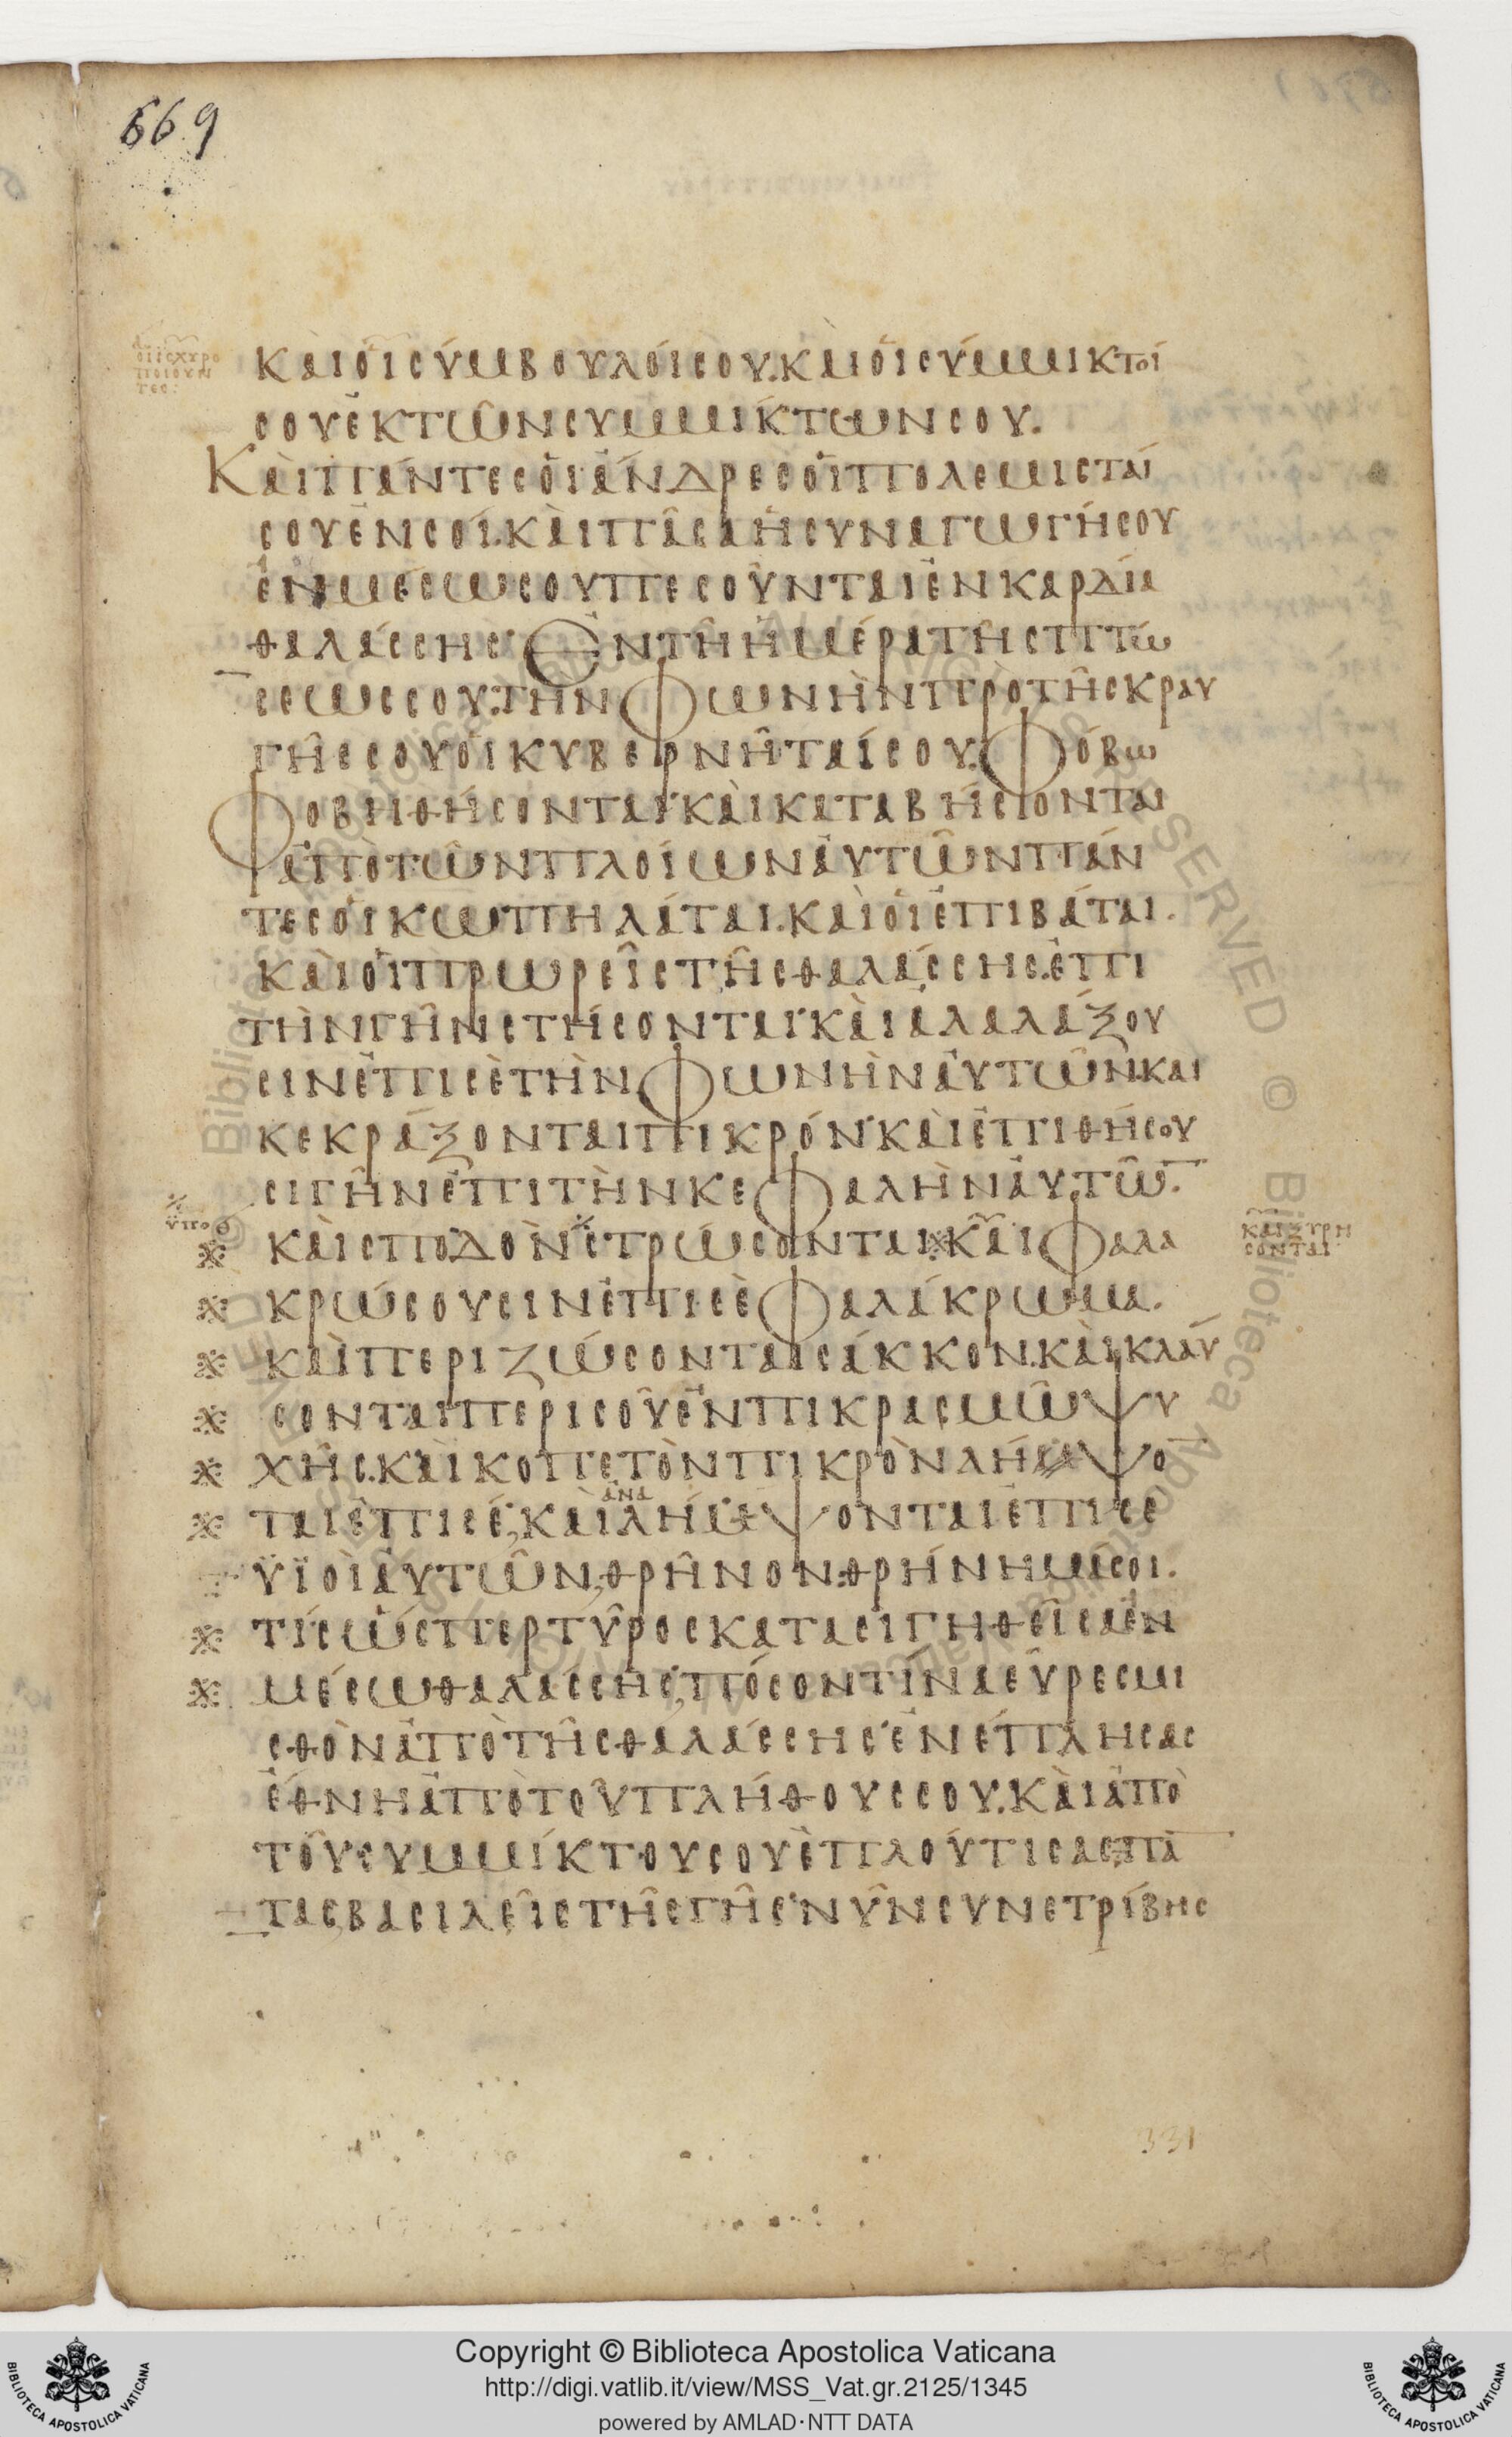 669
α οιισχυρο
ποιουν
τες:
ΚΑΙΟΙΣΥΜΒΟΥΛΟΙΣΟΥ.ΚΑΙΟΙΣΥΜΜΙΚΤΟΙ
ΣΟΥΕΚΤΩΝΣΥΜΜΙΚΤΩΝΣΟΥ.
ΚΑΙΠΑΝΤΕΣΟΙΑΝΔΡΕΣΟΙΠΟΛΕΜΙΣΤΑΙ
ΣΟΥΕΝΣΟΙ.ΚΑΙΠΑΣΑΗΣΥΝΑΓΩΓΗΣΟΥ
ΕΝΜΕΣΩΣΟΥΠΕΣΟΥΝΤΑΙΕΝΚΑΡΔΙΑ
ΘΑΛΑΣΣΗΣ·ΕΝΤΗΗΜΕΡΑΤΗΣΠΤΩ
ΣΕΩΣΣΟΥ.ΤΗΝΦΩΝΗΝΠΡΟΤΗΣΚΡΑΥ
ΓΗΣΣΟΥΟΙΚΥΒΕΡΝΗΤΑΙΣΟΥ.ΦΟΒΩ
ΦΟΒΗΘΗΣΟΝΤΑΙ·ΚΑΙΚΑΤΑΒΗΣΟΝΤΑΙ
ΑΠΟΤΩΝΠΛΟΙΩΝΑΥΤΩΝΠΑΝ
ΤΕΣΟΙΚΩΠΗΛΑΤΑΙ.ΚΑΙΟΙΕΠΙΒΑΤΑΙ.
ΚΑΙΟΙΠΡΩΡΕΙΣΤΗΣΘΑΛΑΣΣΗΣ.ΕΠΙ
ΤΗΝΓΗΝΣΤΗΣΟΝΤΑΙ·ΚΑΙΑΛΑΛΑΞΟΥ
ΣΙΝΕΠΙΣΕΤΗΝΦΩΝΗΝΑΥΤΩΝ.ΚΑΙ
ΚΕΚΡΑΞΟΝΤΑΙΠΙΚΡΟΝ·ΚΑΙΕΠΙΘΗΣΟΥ
ΣΙΓΗΝΕΠΙΤΗΝΚΕΦΑΛΗΝΑΥΤΩ̅.
※ υπο θ
※ ΚΑΙΣΠΟΔΟΝ※ΣΤΡΩΣΟΝΤΑΙ※ΚΑΙΦΑΛΑ
και ξυρη
σονται
※ ΚΡΩΣΟΥΣΙΝΕΠΙΣΕΦΑΛΑΚΡΩΜΑ.
※ ΚΑΙΠΕΡΙΖΩΣΟΝΤΑΙΣΑΚΚΟΝ.ΚΑΙΚΛΑΥ
※ ΣΟΝΤΑΙΠΕΡΙΣΟΥΕΝΠΙΚΡΑΣΜΩΨΥ
※ ΧΗΣ.ΚΑΙΚΟΠΕΤΟΝΠΙΚΡΟΝΛΗΜΨΟ̅
ανα
※ ΤΑΙΕΠΙΣΕ,ΚΑΙΛΗΜΨΟΝΤΑΙΕΠΙΣΕ
ΥΙΟΙΑΥΤΩΝ,ΘΡΗΝΟΝ:ΘΡΗΝΗΜΑΣΟΙ.
※ ΤΙΣΩΣΠΕΡΤΥΡΟΣΚΑΤΑΣΙΓΗΘΕΙΣΑΕΝ
※ ΜΕΣΩΘΑΛΑΣΣΗΣ,ΠΟΣΟΝΤΙΝΑΕΥΡΕΣΜΙ
ΣΘΟΝΑΠΟΤΗΣΘΑΛΑΣΣΗΣ·ΕΝΕΠΛΗΣΑΣ
ΕΘΝΗΑΠΟΤΟΥΠΛΗΘΟΥΣΣΟΥ.ΚΑΙΑΠΟ
ΤΟΥΣΥΜΜΙΚΤΟΥΣΟΥΕΠΛΟΥΤΙΣΑΣΠΑ̅
ΤΑΣΒΑΣΙΛΕΙΣΤΗΣΓΗΣ·ΝΥΝΣΥΝΕΤΡΙΒΗΣ
331
Copyright © Biblioteca Apostolica Vaticana
http://digi.vatlib.it/view/MSS_Vat.gr.2125/1345
powered by AMLAD·NTT DATA